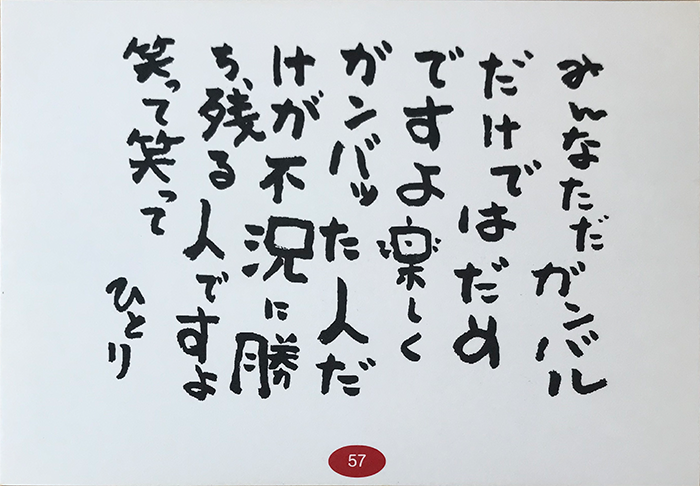 みんなただガンバル
だけではだめ
ですよ楽しく
ガンバッた人だ
けが不況に勝
ち、残る人ですよ
笑って笑って
ひとり
57